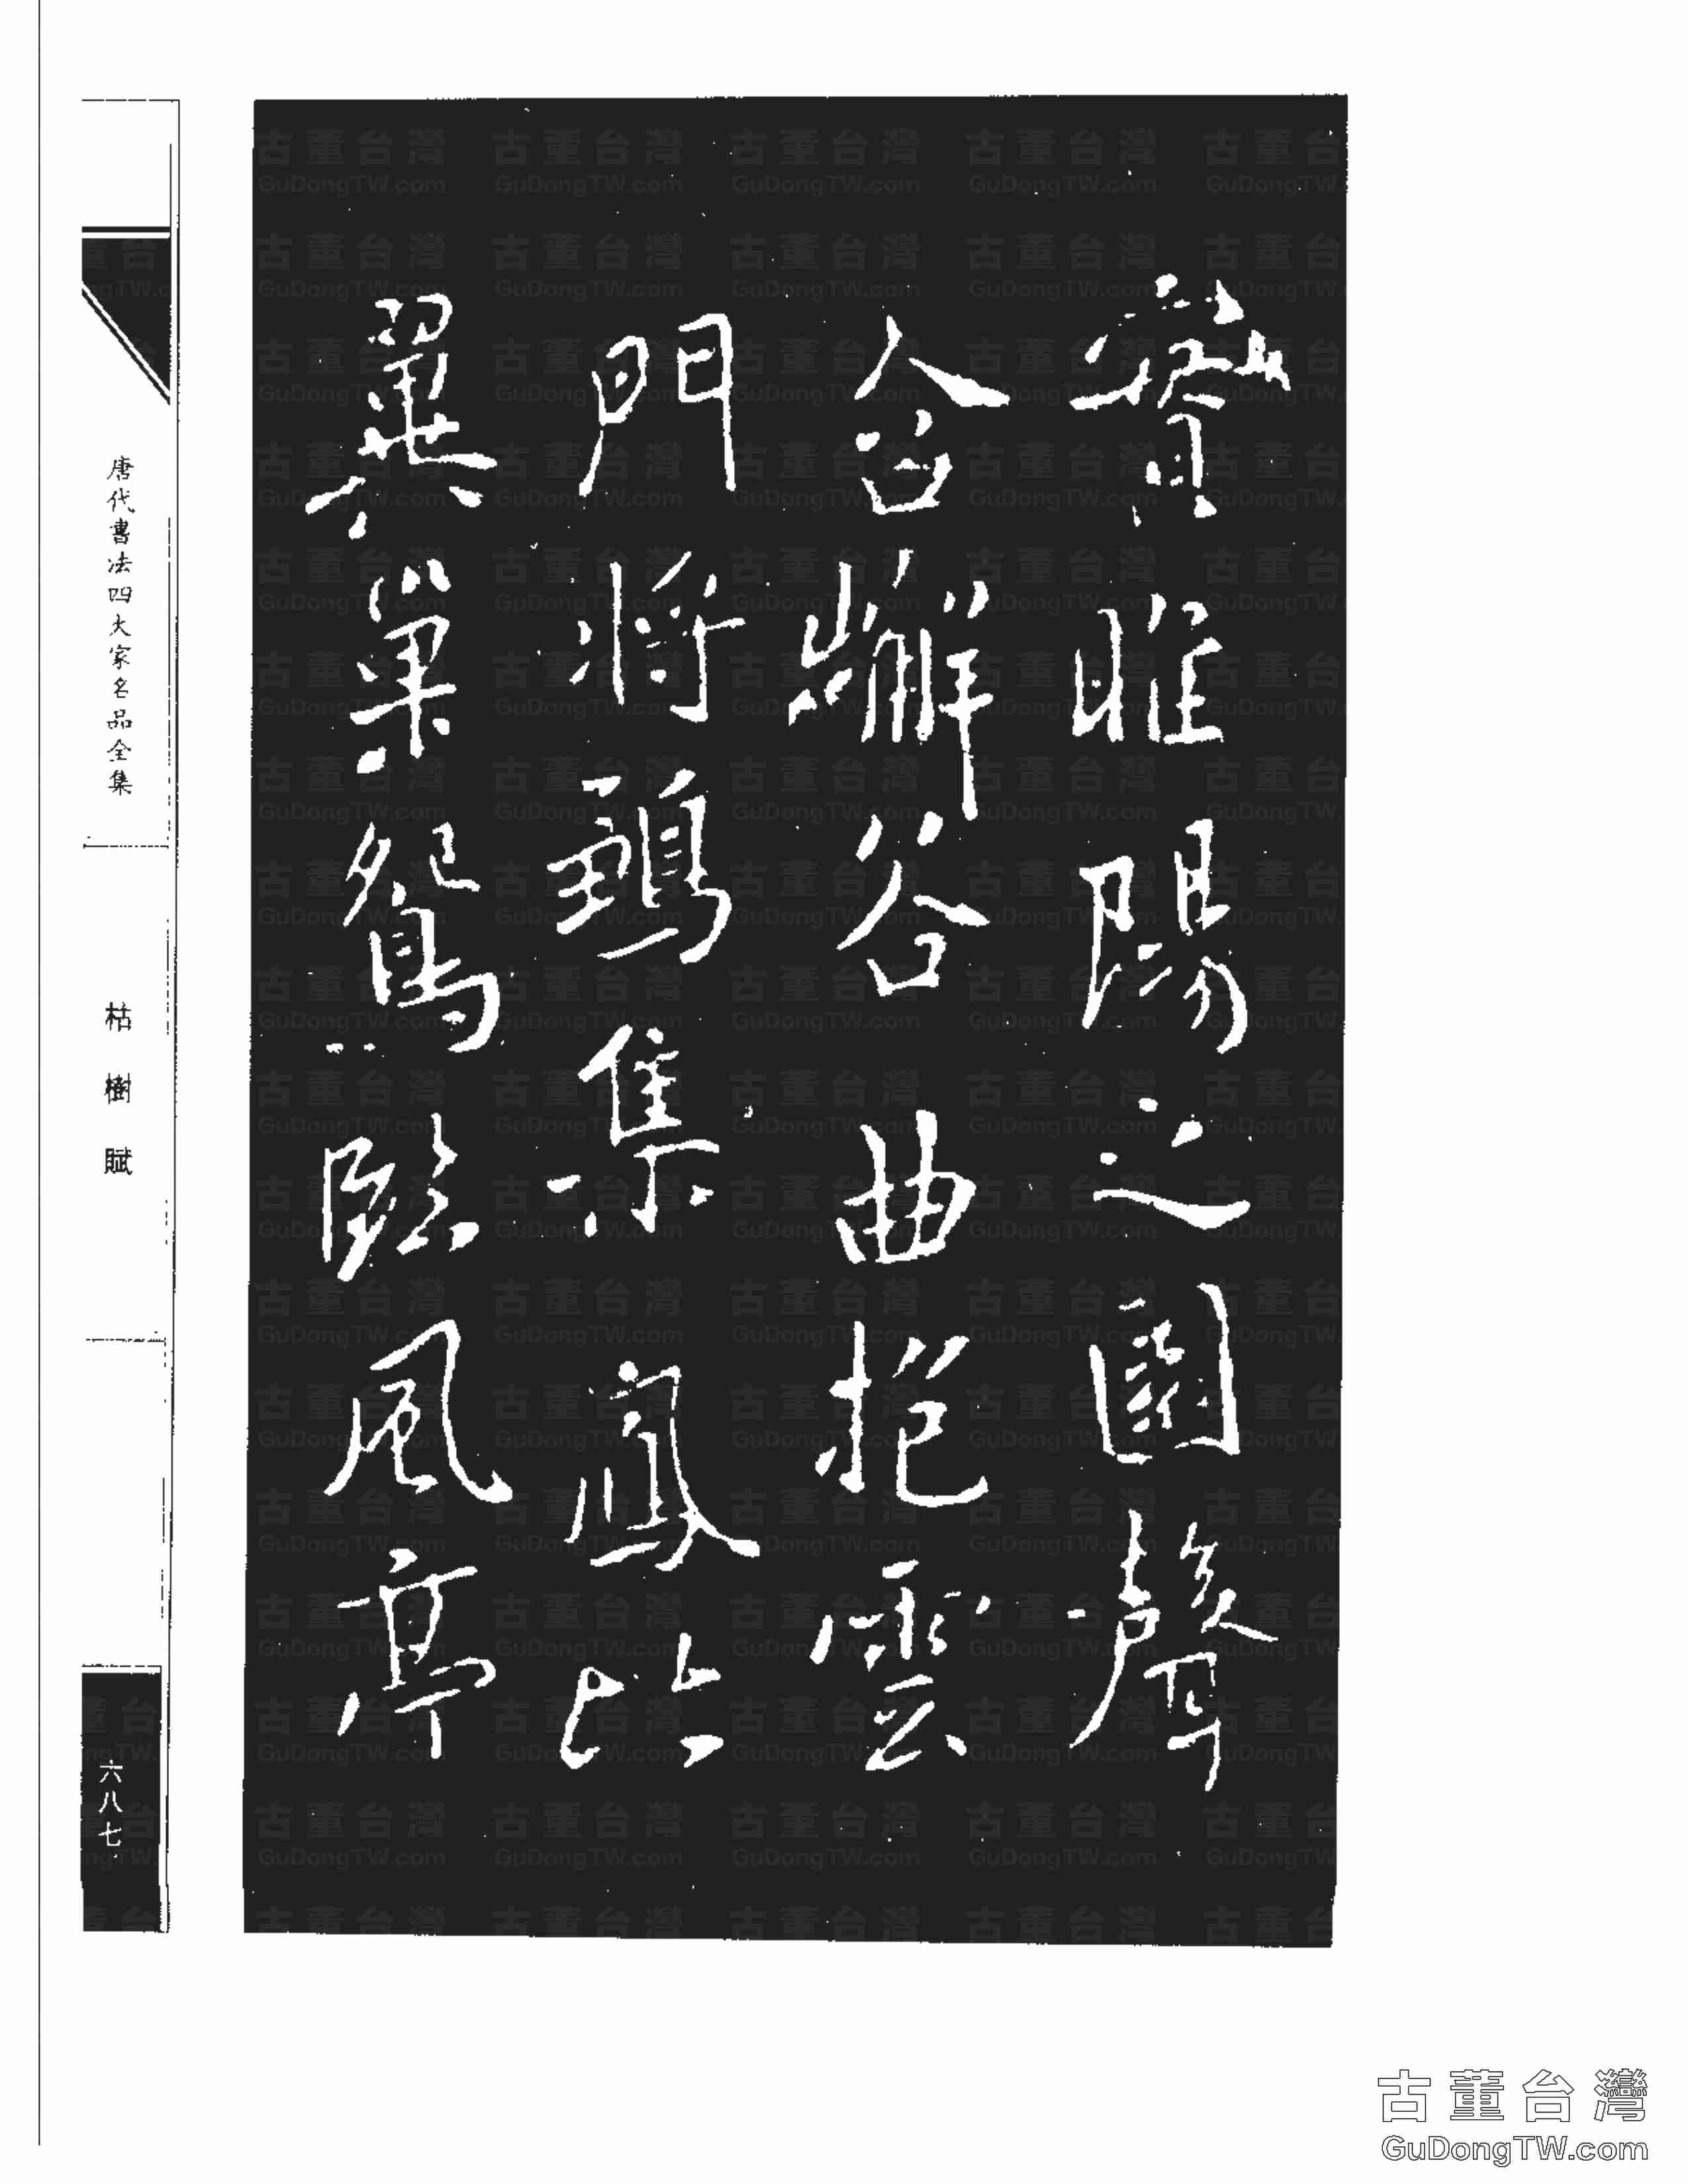 實睢陽之園聲
含嶰谷曲抱雲
門將鶵集鳳比
翼巢鴛臨風亭
唐代書法四大家名品全集
枯樹賦
六八七
古董台灣
GuDongTW.com